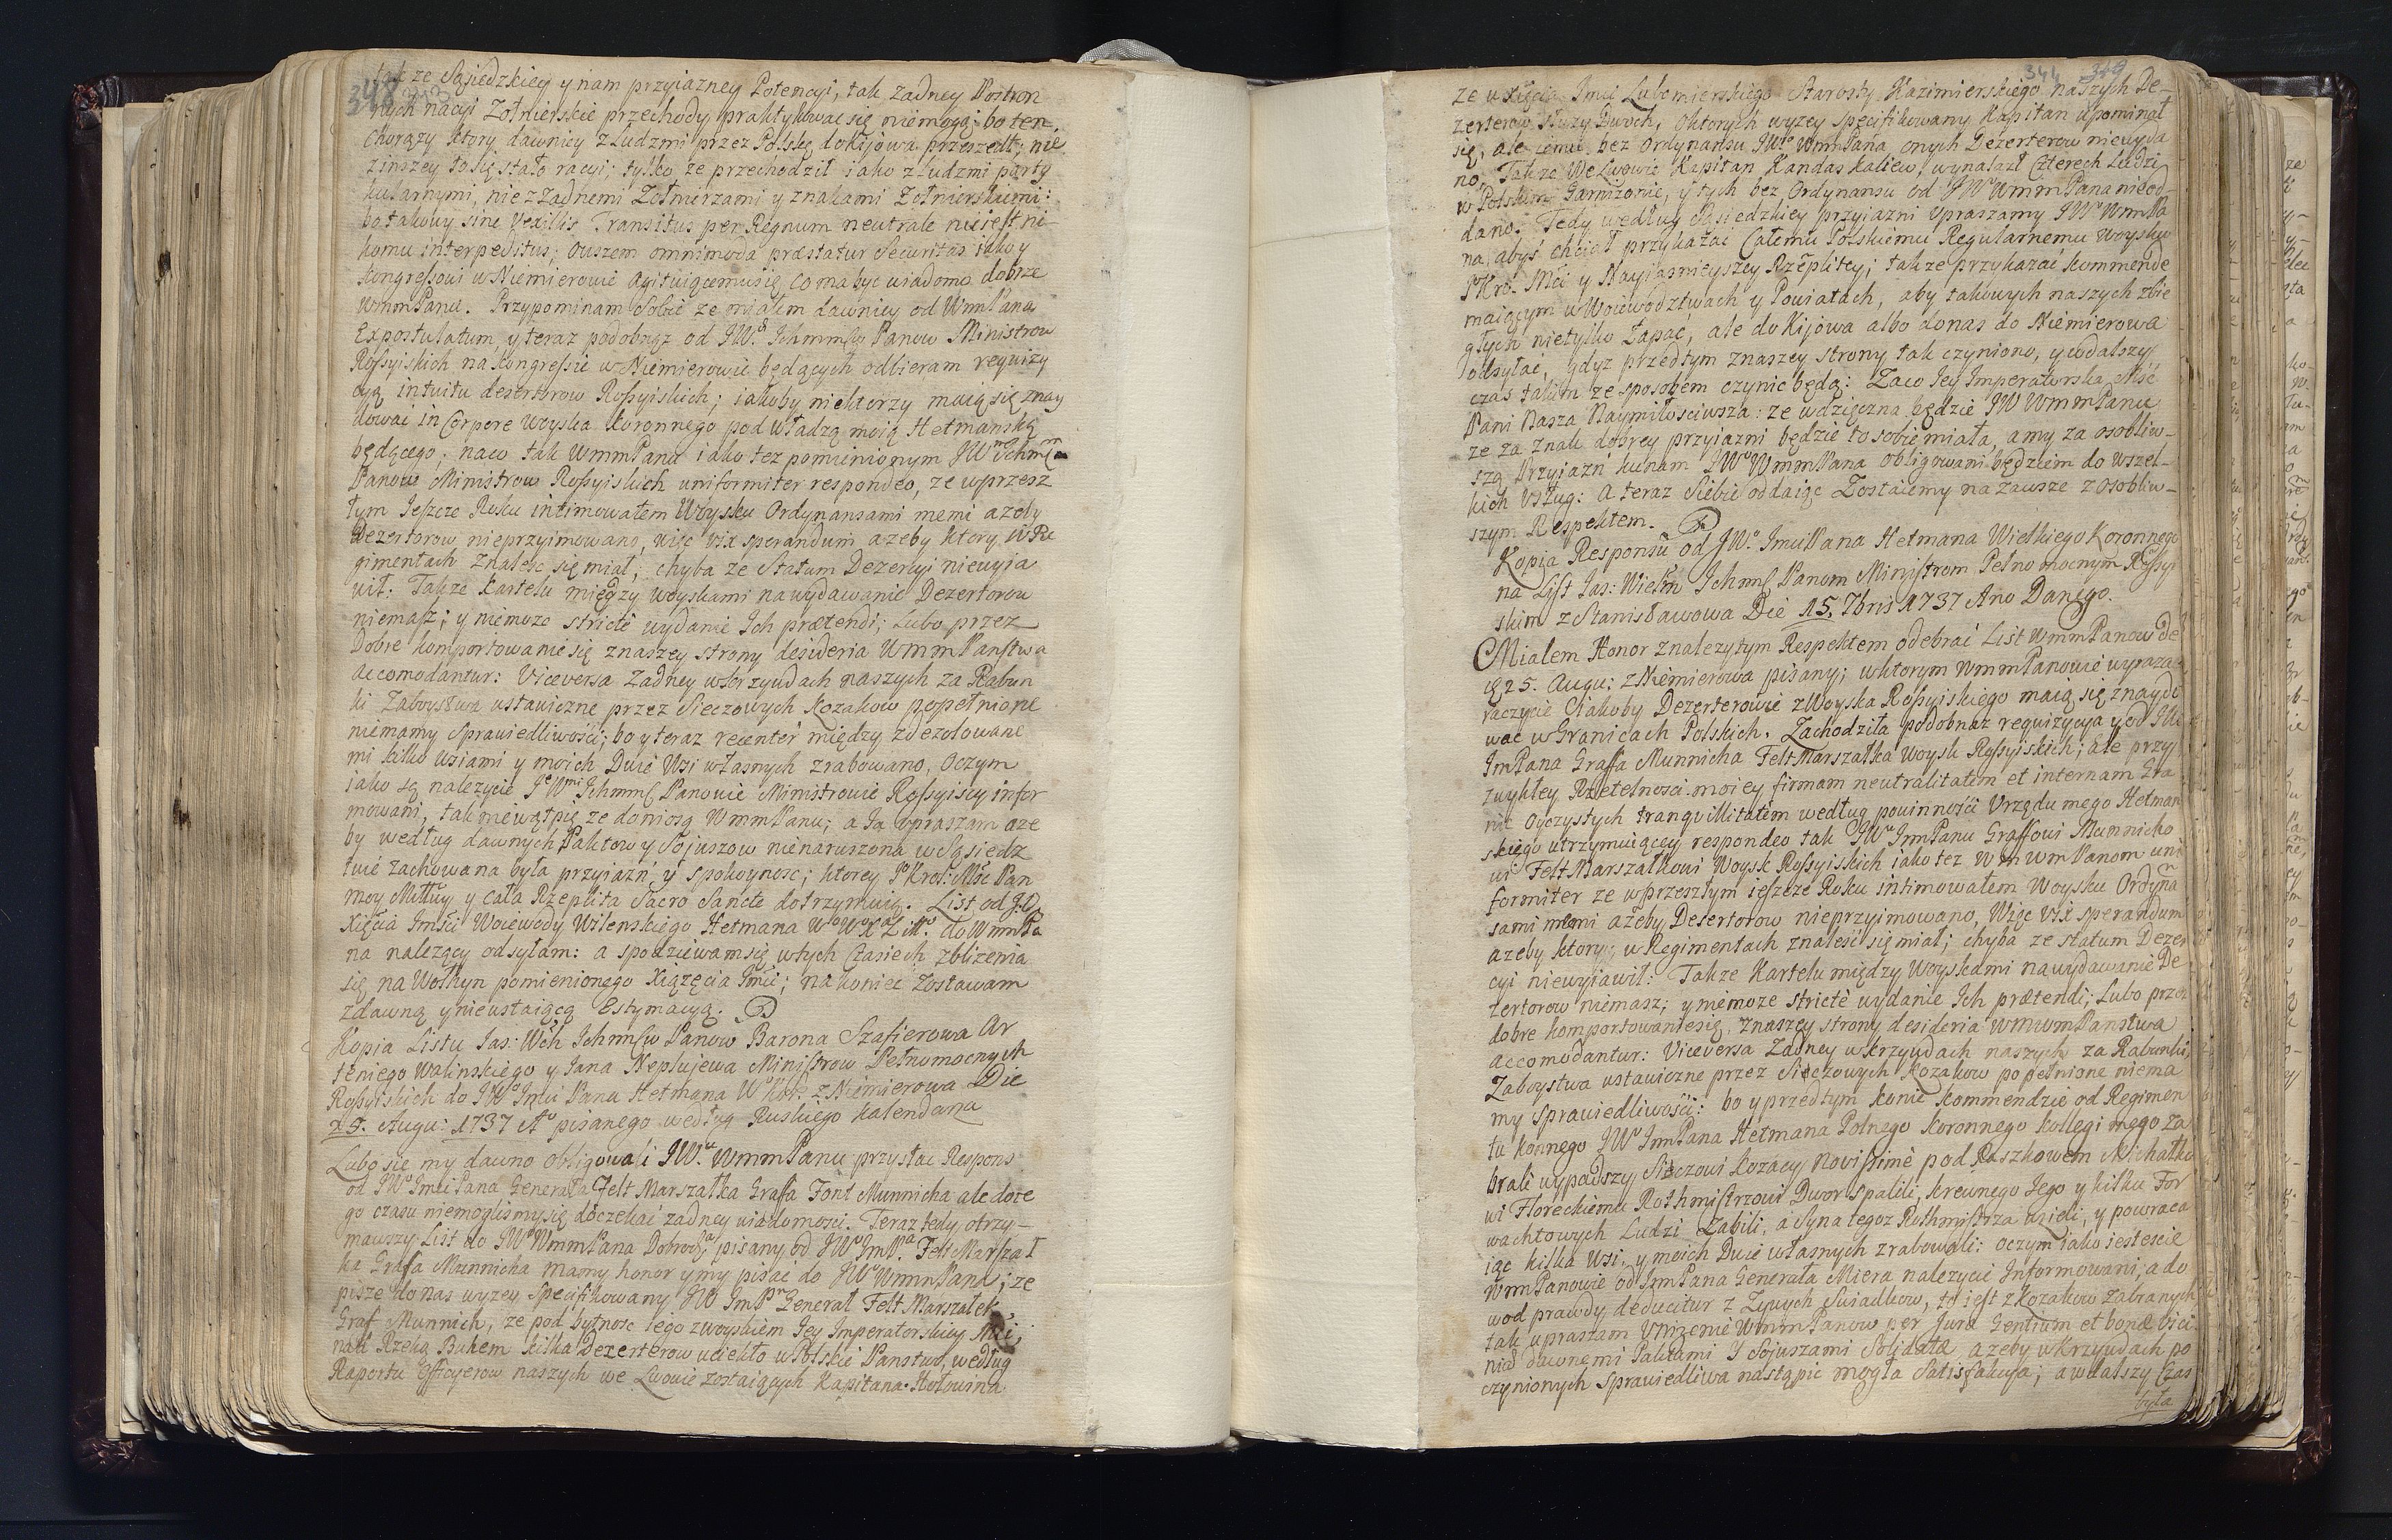 348
tak ze Sąsiedzkiey y nam przyiazney Potencyi, tak zadney Postron
nych nacyi Zołnierskie przechody praktykowac się niemogą; bo ten
Chorązy ktory dawniey z Ludzmi przez Polskę do Kijowa przeszedł; nie
zinszey to się stało racyi; tylko ze przechodził iako z ludzmi party
kularnymi, nie z Zadnemi Zołnierzami y znakami Zołnierskiemi:
bo takowy sine Vexillis Transitus per Regnum neutrale nieiest ni-
komu interpeditus; owszem omnimoda præstatur Securitas iako y
kongressowi w Niemierowie agituiącemusię, co ma byc wiadomo dobrze
WmmPanu. Przypominam Sobie ze miałem dawniey od WmmPana
Expostulatum, y teraz podobnąz od JWch Ichmmsw Panow Ministrow
Rossyiskich na kongressie w Niemierowie będących odbieram requizy
cyą intuitu desertorow Rossyiskich; iakoby niektorzy maią się znay
dowac in Corpore woyska koronnego pod władzą moią Hetmanską
będącego; naco tak WmmPanu iako tez pomienionym JWm Ichm
Panow Ministrow Rossyiskich uniformiter respondeo, ze wprzesz
łym Ieszcze Roku intimowałem Woysku Ordynansami memi azeby
Dezertorow nieprzyimowano, więc vix sperandum azeby ktory w Re
gimentach Znalesc się miał; chyba ze Statum Dezercyi niewyia
wił: Takze Kartelu między woyskami na wydawanie Dezertorow
niemasz; y niemoze strictè wydanie Ich prætendi; Lubo przez
Dobre komportowanie się znaszey strony desideria WmmPanstwa
accomodantur: Viceversa Zadney w krzywdach naszych za Rabun
ki Zaboystwa ustawiczne przez Sieczowych Kozakow popełnione
niemamy Sprawiedliwości; bo y teraz recenter między zdezolowane
mi kilko wsiami y moich Dwie Wsi własnych zrabowano, Oczym
iako są nalezycie JeWmi Ichmm Panowie Ministrowie Rossyiscy infor
mowani, tak niewątpię ze doniosą WmmPanu; a Ia upraszam aze
by według dawnych Paktow y Sojuszow nienaruszona w Sąsiedz
twie zachowana była przyiazń y spokoynosc; ktorey Jo Krol: Mśc Pan
moy Mttwy y cała Rzeplita Sacro Sancte dotrzymuią. List od J:O
Xięcia Imści Woiewody Wilenskiego Hetmana Wo WXaLitto do WmmPa
na nalezący odsyłam: a spodziewam się w tych Czasiech zblizenia
się na Wołhyn pomienionego Xiązęcia Jmci; na koniec Zostawam
zdawną y nieustaiącą Estymacyą.
Kopia Listu Ias: Wch Ichmsw Panow Barona Szafierowa Ar
teniego Walinskiego y Iana Neplujewa Ministrow Pełnomocnych
Rossyiskich do JWo Jmci Pana Hetmana Wo Kor: z Niemierowa Die
25. Augu: 1737 Ao pisanego według Ruskiego Kalendarza
Lubo się my dawno obligowali JWu WmmPanu przysłac Respons
od JWo Jmci Pana Generała Felt Marszałka Grafa Font Munnicha ale do te
go czasu niemoglismy się doczekać zadney wiadomosci. Teraz tedy, otrzy-
mawszy List do JWo WmmPana Dobrodza pisany od JWo ImPa Felt Marszał
ka Grafa Munnicha mamy honor y my pisać do JWo WmmPana; ze
pisze do nas wyzey Specifikowany JW ImPn General Felt Marszałek
Graf Munnich, ze pod bytnosc iego z woyskiem Jey Imperatorskiey Mci,
nad Rzeką Buhem kilka Dezerterow uciekło w Polskie Panstwo, według
Raportu Officyerow naszych we Lwowie zostaiących Kapitana Hołowina
344
ze u Xięcia Jmci Lubomierskiego Starosty Kazimierskiego naszych De-
zerterow Słuzy Dwoch, oktorych wyzey specifikowany Kapitan upominał
się, ale iemu bez Ordynansu JWo WmmPana onych Dezerterow niewyda
no. Takze We Lwowie Kapitan Kandaskaliew, wynalazł Czterech Ludzi
w Polskim Garnizonie, y tych bez Ordynansu od JWo WmmPana nieod-
dano. Tedy według Sąsiedzkiey przyiazni Upraszamy JWo WmmPa
na, abyś chciał przykazać Całemu Polskiemu Regularnemu Woysku
JoKro: Mći y Nayiasnieyszey Rzeplitey; takze przykazać kommende
maiącym w Woiewodztwach y Powiatach, aby takowych naszych zbie
głych nietylko Łapac, ale do Kijowa albo do nas do Niemierowa
odsyłac, gdyz przedtym znaszey strony tak czyniono, y wdalszy
czas takim ze sposobem czynic będą: Zaco Jey Imperatorska Mśc
Pani Nasza Naymiłosciwsza: ze wdzięczna będzie JW WmmPanu
ze za Znak dobrey przyiazni będzie to sobie miała, a my za osobliw-
szą Przyiazń ku nam JWo WmmPana obligowani będziem do wszel-
kich Usług: A teraz Siebie oddaiąc Zostaiemy na zawsze z osobliw-
szym Respektem.
Kopia Responsu od JWo. Jmci Pana Hetmana Wielkiego Koronnego
na List Ias: Wielm Ichmm Panom Ministrom Pełnomocnym Rossyi
skim z Stanisławowa Die 15. 7bris 1737 Ano Danego.
Miałem Honor znalezytym Respektem odebrać List WmmPanow de
25. Augu: z Niemierowa pisany; wktorym WmmPanowie wyraza
raczycie Ciakoby Dezerterowie z Woyska Rossyiskiego maią się znaydo
wac w Granicach Polskich. Zachodziła podobnaz requizycya y od JW
ImPana Graffa Munnicha Felt Marszałka Woysk Rossyiskich; ale przy
zwykłey Rzetelnosci moiey firmam neutralitatem et internam Gra
nic Oyczystych tranquillitatem według powinności Urzędu mego Hetman
skiego utrzymuiącey respondeo tak JWu ImPanu Graffowi Munnicho
wi Felt Marszałkowi Woysk Rossyiskich iako tez WmwmPanom uni
formiter ze wprzeszłym ieszcze Roku intimowałem Woysku Ordynan
sami memi azeby Desertorow nieprzyimowano, Więc vix sperandum
azeby ktory, w Regimentach znalesć się miał; chyba ze statum Dezer
cyi niewyiawił: Takze Kartelu między Woyskami na wydawanie De
zertorow niemasz; y niemoze strictè wydanie Ich prætendi; Lubo przez
dobre komportowanie się, znaszey strony desideria WmwmPanstwa
accomodantur: Viceversa Zadney w krzywdach naszych za Rabunki,
Zaboystwa ustawiczne przez Sieczowych Kozakow popełnione niema
my sprawiedliwości: bo y przedtym konie Kommendzie od Regimen
tu konnego JWo ImPana Hetmana Polnego Koronnego kollegi mego za
brali wypadszy Sieczowi Kozacy Novissimè pod Raszkowem Michałko
wi Floreckiemu Rothmistrzowi Dwor spalili, krewnego Iego y kilku For
wachtowych Ludzi Zabili, a Syna tegoz Rothmistrza wzieli, y powraca
iąc kilka Wsi, y moich Dwie własnych zrabowali: oczym iako iestescie
WmmPanowie od ImPana Generała Miera nalezycie Informowani, a do
wod prawdy deducitur z Zywych Swiadkow, to iest z Kozakow zabranych
tak upraszam Unizenie WmmPanow per Jura Gentium et bonæ vici
niæ dawnemi Paktami y Sojuszami Solidatæ azeby w krzywdach po
czynionych sprawiedliwa nastąpic mogła Satisfakcya; a wdalszy Czas
była